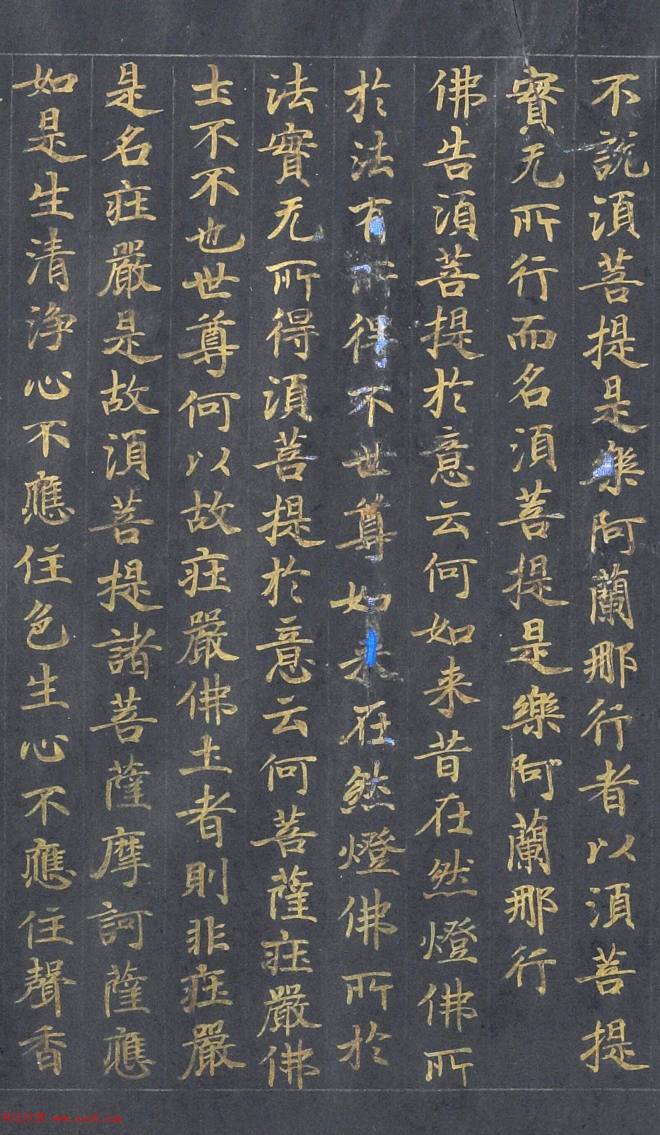 不說須菩提是樂阿蘭那行者以須菩提
實无所行而名須菩提是樂阿蘭那行
佛告須菩提於意云何如来昔在然燈佛所
於法有所得不世尊如来在然燈佛所於
法實无所得須菩提於意云何菩薩莊嚴佛
土不不也世尊何以故莊嚴佛土者則非莊嚴
是名莊嚴是故須菩提諸菩薩摩訶薩應
如是生清淨心不應住色生心不應住聲香